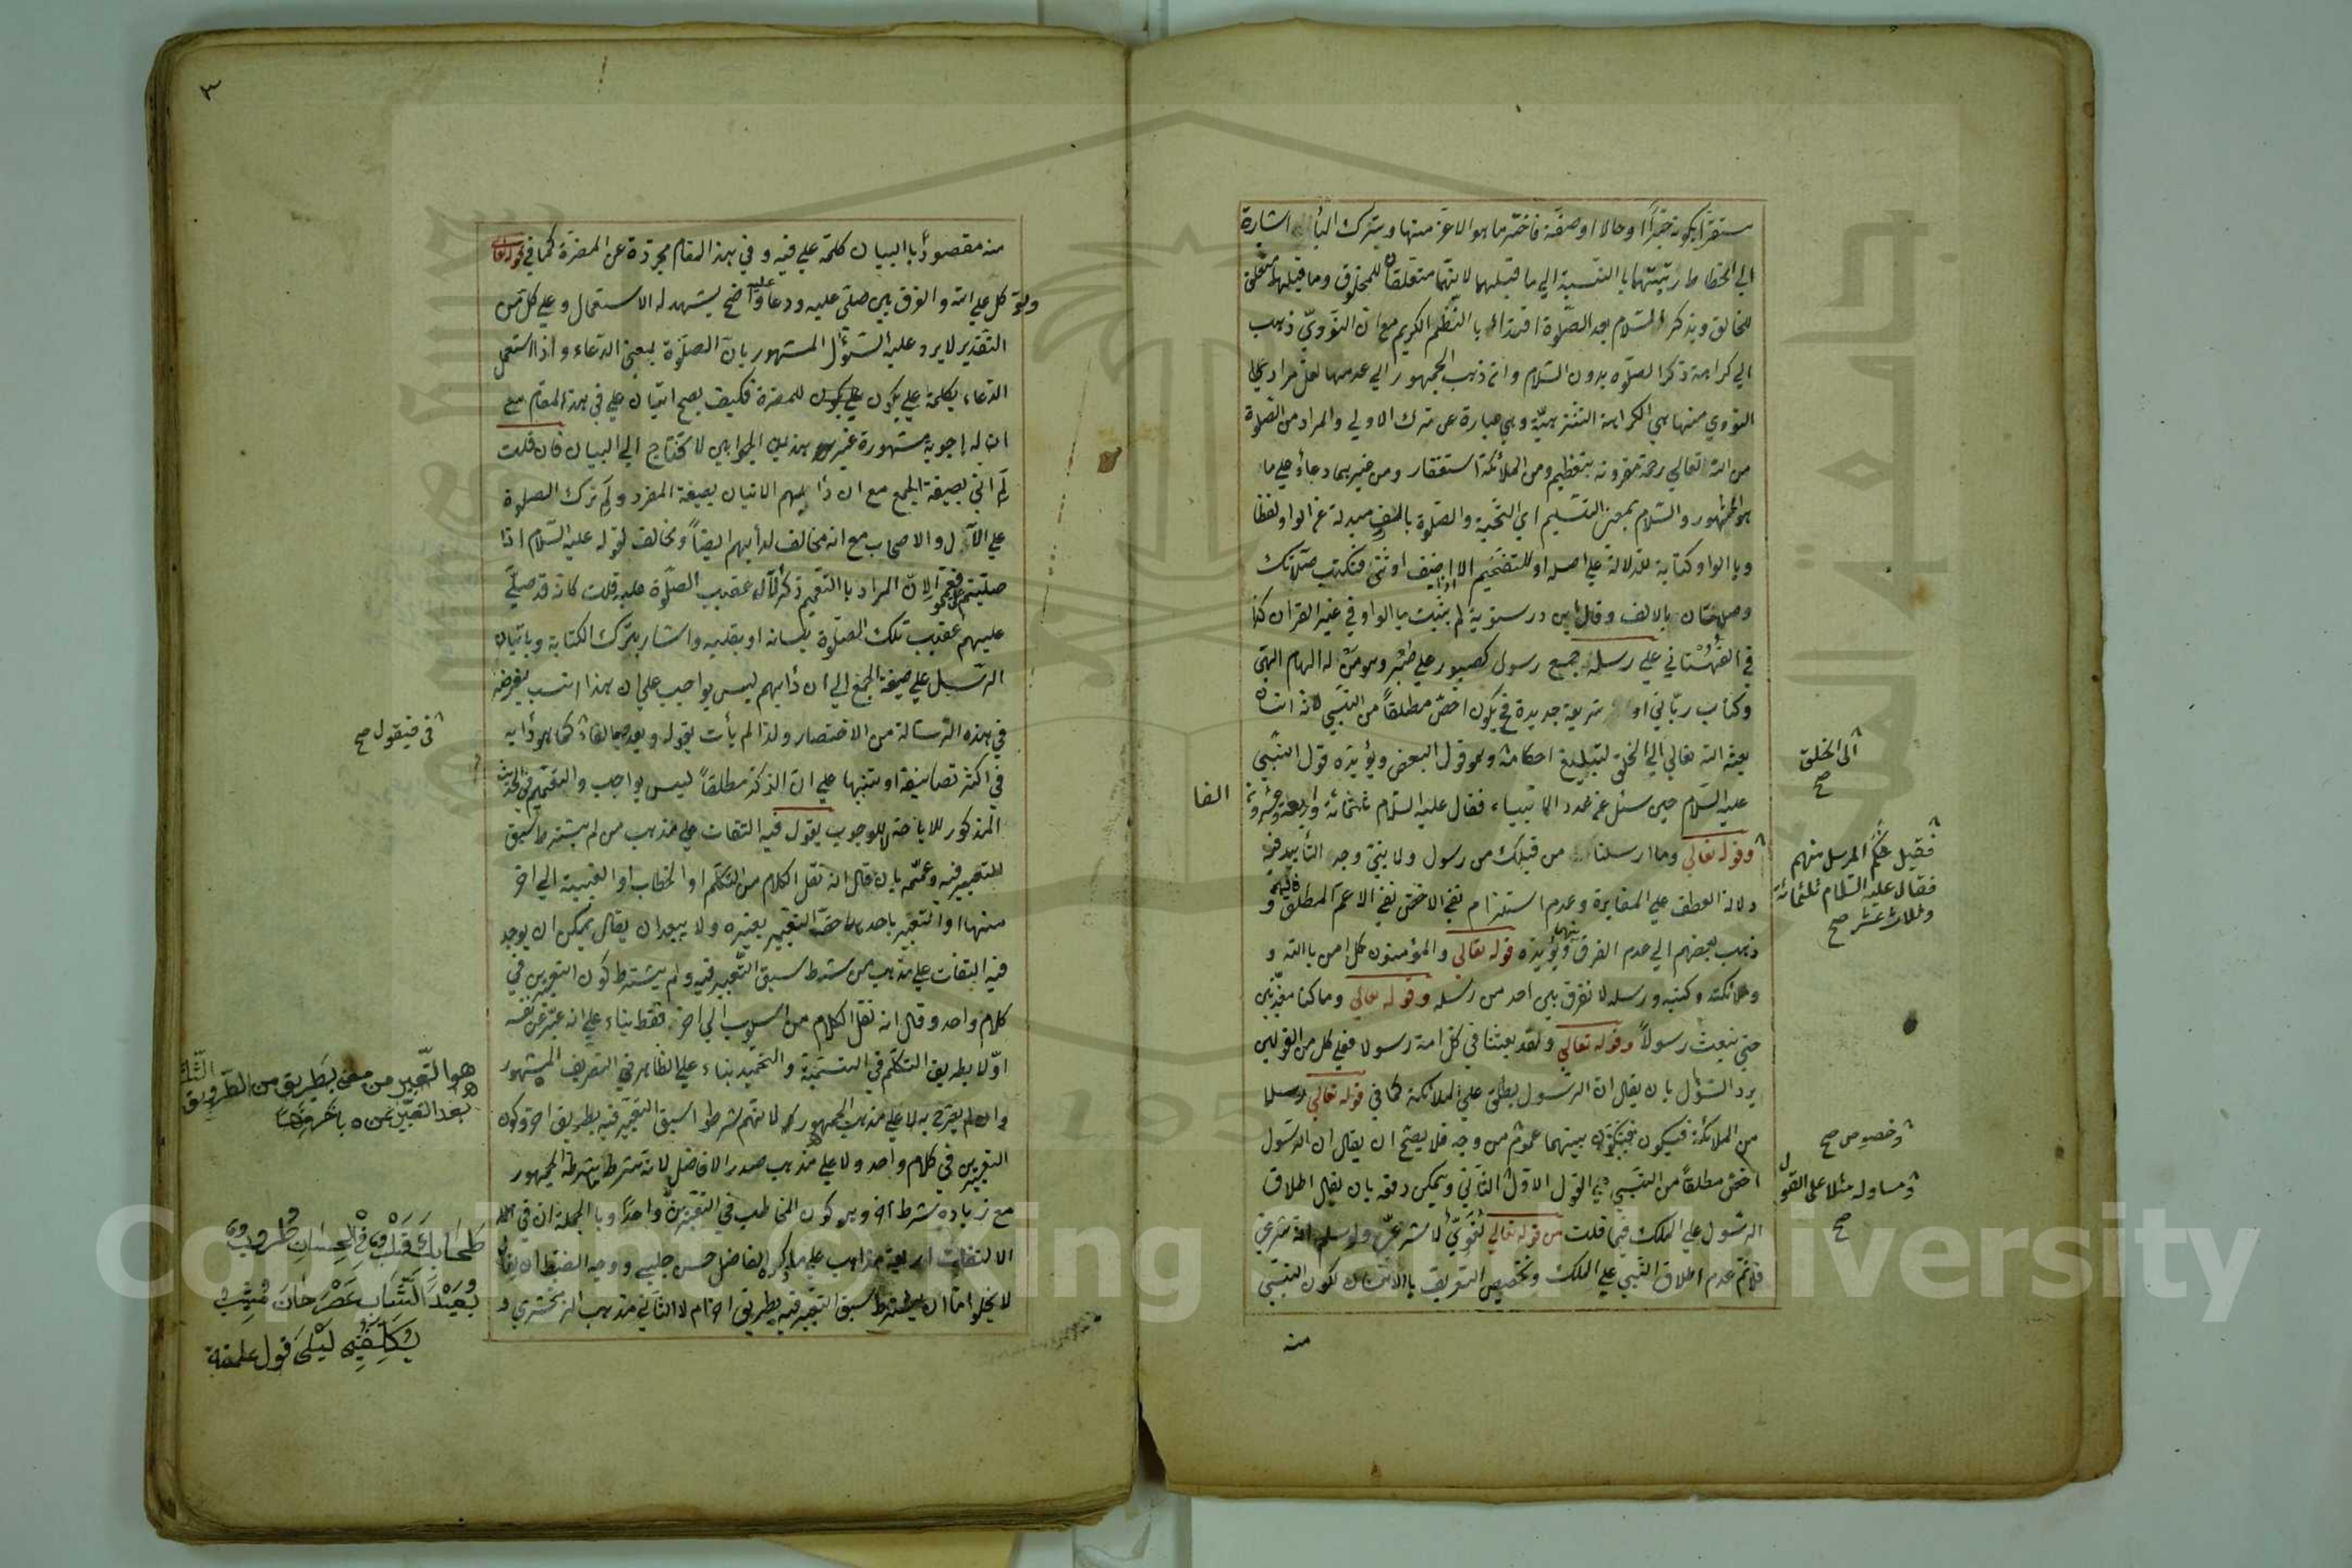 مستقرا بكونه خبرا او حالا او صفة فاختر ما هو الاعز منها ويترك اشارة
الي انحطاط رتبتهما بالنسبة الي ما قبلهما لانهما متعلقان للمخلوق وما قبلهما متعلق
للخالق ويذكر السلام بعد الصلوة اقتداء بالنظم الكريم مع ان النووي ذهب
الي كراهة ذكر الصلوة بدون السلام وان ذهب الجمهور الي عدمها لعل مراد
النووي منها هي الكراهة التنزيهية وهي عبارة عن ترك الاولي والمراد من الصلوة
من الله تعالي رحمة مقرونة بتعظيم ومن الملائكة استغفار ومن غيرهما دعاء علي ما
هو المشهور والسلام بمعني التسليم اي التحية والصلوة بالالف مبدلة عن الواو لفظا
وبالواو كتابة للدلالة علي اصله او للتفخيم الا اذا اضيف او ثني فتكتب صلاتك
وصلاتان بالالف وقال ابن درستويه لم يثبت بالواو في غير القران كذا
في القهستاني علي رسله جمع رسول كصبور علي صبر وهو من له الهام الهي
وكتاب رباني او شريعة جديدة فيكون اخص مطلقا من النبي لانه انسان
بعثه الله تعالي الي الخلق لتبليغ احكامه وهو قول البعض ويؤيده قول النبي
عليه السلام حين سئل عن عدد الانبياء فقال عليه السلام
وقوله تعالي وما ارسلنا من قبلك من رسول ولا نبي وجه التأييد فيه
دلالة العطف علي المغايرة وعدم استلزام نفي الاخص نفي الاعم المطلق و
ذهب بعضهم الي عدم الفرق بينهما ويؤيده قوله تعالي والمؤمنون كل امن بالله و
وملائكته وكتبه ورسله لا نفرق بين احد من رسله وقوله تعالي وما كنا معذبين
حتي نبعث رسولا وقوله تعالي ولقد بعثنا في كل امة رسولا فعلي كل من القولين
يرد السؤال بان يقال ان الرسول يطلق علي الملائكة كما في قوله تعالي رسلا
من الملائكة فيكون بينهما عموم من وجه فلا يصح ان يقال ان الرسول
اخص مطلقا من النبي علي القول الاول الثاني ويمكن دفعه بان يقال اطلاق
الرسول علي الملك فيما قلت من قوله تعالي لغوي لا شرعي ولو سلم انه شرعي
فلانم عدم اطلاق النبي علي الملك وتخصيص التعريف بالانسان لكون النبي
منه
الي الخلق
صح
فقيل كم المرسل منهم
فقال عليه السلام ثلثمائة
وثلاث عشر صح
وخصوص صح
ومساو له مثلا علي القول
صح
الفا
٣
منه مقصودا باالبيان كلمة علي فيه وفي هذا المقام مجردة عن المضرة كما في قوله تعالي
وتوكل علي الله والفرق بين صلي عليه ودعا عليه واضح يشهد له الاستعمال وعلي كل من
التقدير لا يرد عليه السؤال المشهور بان الصلوة بمعني الدعاء واذا استعمل
الدعاء بكلمة علي يكون للمضرة فكيف يصح اتيان علي في هذا المقام مع
ان له اجوبة مشهورة غير هذين الجوابين لا تحتاج الي البيان فان قلت
لم اتي بصيغة الجمع مع ان دأبهم الاتيان بصيغة المفرد ولم ترك الصلوة
علي الآل والاصحاب مع انه مخالف لدأبهم ايضا ومخالف لقوله عليه السلام اذا
صليتم علي فعمموا لان المراد باالتعميم ذكر الآل عقيب الصلوة عليه قلت كانه قد صلي
عليهم عقيب تلك الصلوة بلسانه او بقلبه واشار بترك الكتابة وباتيان
الرسل علي صيغة الجمع الي ان دأبهم ليس بواجب علي ان هذا انسب بغرضه
في هذه الرسالة من الاختصار ولذا لم يأت بقوله وبعد كما هو دأبه
في اكثر تصانيفه او تنبيها علي ان الذكر مطلقا ليس بواجب والتعميم في الحديث
المذكور للاباحة لا للوجوب يقول فيه التفات علي مذهب من لم يشترط سبق
التعبير فيه وعممه بان قال انه نقل الكلام من التكلم او الخطاب او الغيبة الي اخر
منها او التعبير باحدها حق التعبير بغيره ولا يبعد ان يقال يمكن ان يوجد
فيه التفات علي مذهب من شرط سبق التعبير فيه ولم يشترط كون التعبيرين في
كلام واحد وقال انه نقل الكلام من اسلوب الي اخر فقط بناء علي انه عبر عن نفسه
اولا بطريق التكلم في التسمية والتحميد بناء علي الظاهر في التعريف المشهور
وان لم يصرح به لا علي مذهب الجمهور لانهم شرطوا سبق التعبير فيه بطريق اخر وكون
التعبيرين في كلام واحد ولا علي مذهب صدر الافاضل لانه شرط ما شرطه الجمهور
مع زيادة شرط اخر وهو كون المخاطب في التعبيرين واحدا وباالجملة ان في
الالتفات اربعة مذاهب علي ما ذكره الفاضل حسن چلبي ووجه الضبط ان يقال
لا يخلو اما ان يشترط سبق التعبير فيه بطريق اخر ام لا الثاني مذهب الزمخشري و
في فيقول صح
هو التعبير من معني بطريق من الطرق الثلث
بعد التعبير عنه بآخر منها
طحا بك قلب في الحسان طروب
بعيد الشباب عصر حان مشيب
يكلفني ليلي قول علقمة